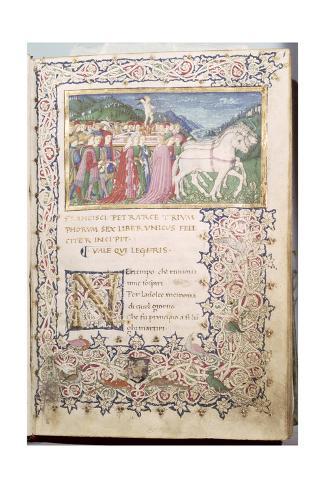 FRANCISCI PETRARCE TRIVM
PHORVM SEX LIBER VNICVS FELI
CITER INCIPIT
VALE QVI LEGERIS
NEl tempo che rinnova
miei sospiri
Per la dolce memoria
di quel giorno
Che fu principio a si lo
ghi martiri